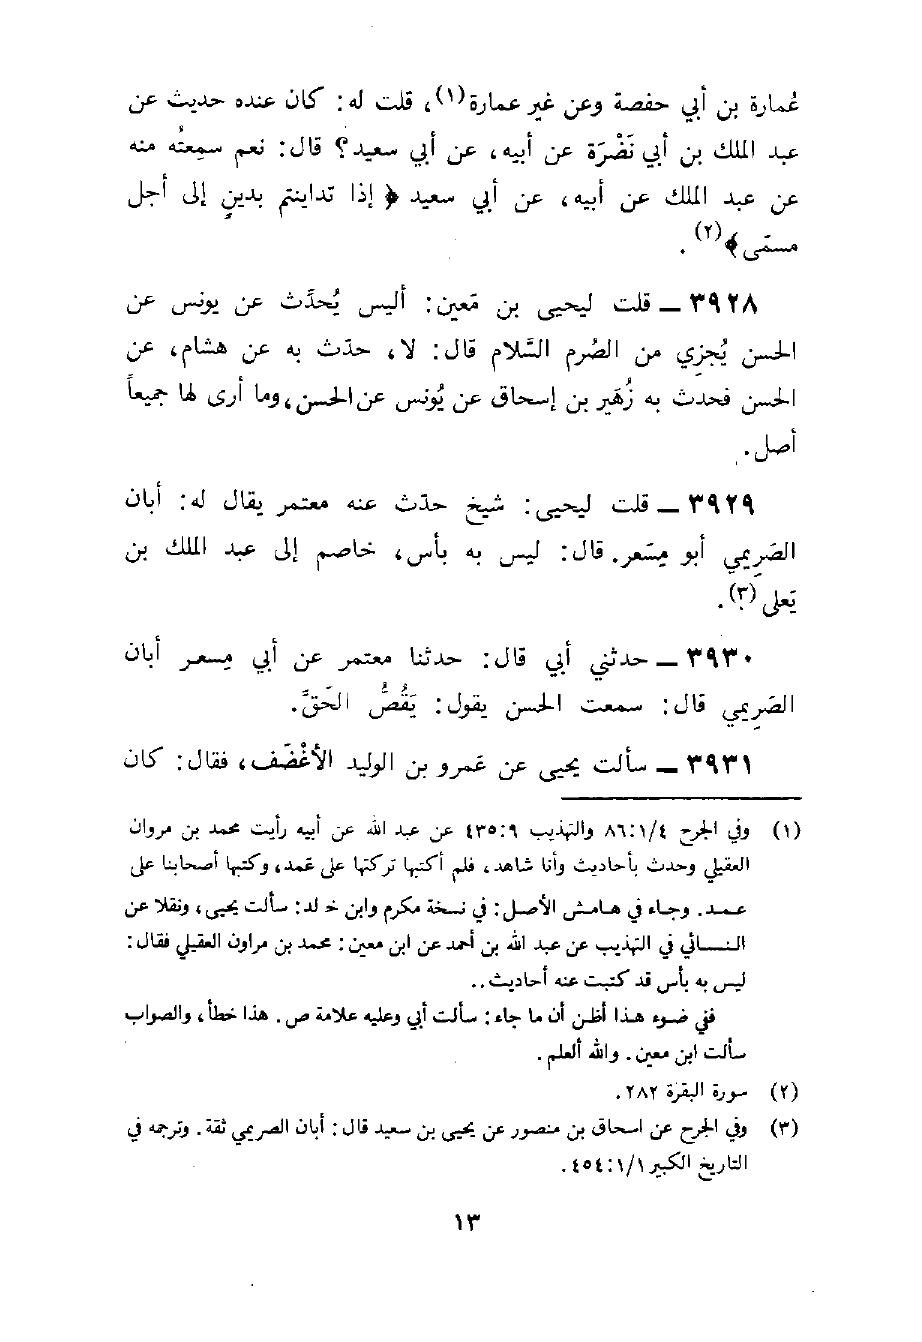 عُمارة بن أبي حفصة وعن غير عمارة(١)، قلت له: كان عنده حديث عن
عبد الملك بن أبي نَضْرَة عن أبيه، عن أبي سعيد؟ قال: نعم سمِعتُه منه
عن عبد الملك عن أبيه، عن أبي سعيد ﴿ إذا تداينتم بدينٍ إلى أجل
مسمّى ﴾(٢).
٣٩٢٨ ــ قلت ليحيى بن مَعين: أليس يُحدِّث عن يونس عن
الحسن يُجزِي من الصُرم السَّلام قال: لا، حدّث به عن هشام، عن
الحسن فحدث به زُهَير بن إسحاق عن يُونس عن الحسن، وما أرى لها جميعاً
أصل.
٣٩٢٩ ــ قلت ليحيى: شيخ حدّث عنه معتمر يقال له: أبان
الصَرِيمي أبو مِسَعر. قال: ليس به بأس، خاصم إلى عبد الملك بن
يَعلى(٣).
٣٩٣٠ ــ حدثني أبي قال: حدثنا معتمر عن أبي مِسعر أبان
الصَرِيمي قال: سمعت الحسن يقول: يَقُصُّ الحَقَّ.
٣٩٣١ ــ سألت يحيى عن عَمرو بن الوليد الأغْضَف، فقال: كان
(١) وفي الجرح ٨٦:١/٤ والتهذيب ٤٣٥:٩ عن عبد الله عن أبيه رأيت محمد بن مروان
العقيلي وحدث بأحاديث وأنا شاهد، فلم أكتبها تركتها على عَمد، وكتبها أصحابنا على
عمد. وجاء في هامش الأصل: في نسخة مكرم وابن خ لد: سألت يحيى، ونقلا عن
النسائي في التهذيب عن عبد الله بن أحمد عن ابن معين: محمد بن مراون العقيلي فقال:
ليس به بأس قد كتبت عنه أحاديث..
ففي ضوء هذا أظن أن ما جاء: سألت أبي وعليه علامة ص. هذا خطأ، والصواب
سألت ابن معين. والله ألعلم.
(٢) سورة البقرة ٢٨٢.
(٣) وفي الجرح عن اسحاق بن منصور عن يحيى بن سعيد قال: أبان الصريمي ثقة. وترجمه في
التاريخ الكبير ٤٥٤:١/١.
١٣